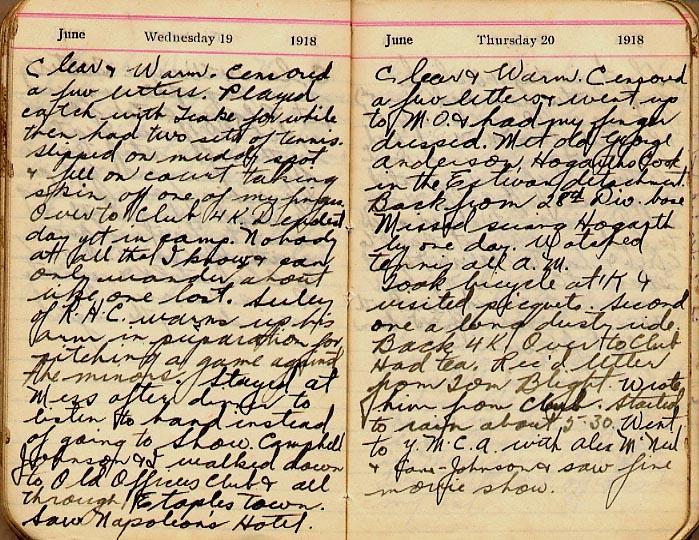 June Wednesday 19 1918
Clear & Warm. Censored
a few letters. Played
catch with for while
then had two sets of tennis.
Slipped on muddy spot
& fell on court taking
skin off one of my fingers.
Over to Club 4 K. Deadest
day yet in camp. Nobody
at all that I know & can
only wander about
like one lost.
of R.H.C. warms up his
arm in preparation for
pitching a game against
the minors. Stayed at
Mess after dinner to
listen to band instead
of going to show. Campbell
Johnson & I walked down
to Old Officers Club & all
through Etaples town.
Saw Napoleon's Hotel.
June Thursday 20 1918
Clear & Warm. Censored
a few letters & went up
to M.O. & had my finger
dressed. Met old George
Anderson, Hogarths Cook
in the Estevan detachment.
Back from 2nd Div. base
Missed seeing Hogarth
by one day. Watched
tennis all A.M.
Took bicycle at K &
visited picquets. Second
one a long dusty ride.
Back 4 K. Over to Club
Had tea. Rec'd letter
from Tom Blight. Wrote
him from Club. Started
to rain about 5-30. Went
to Y.M.C.A. with Alex McNeil
& Johnson & saw fine
movie show.